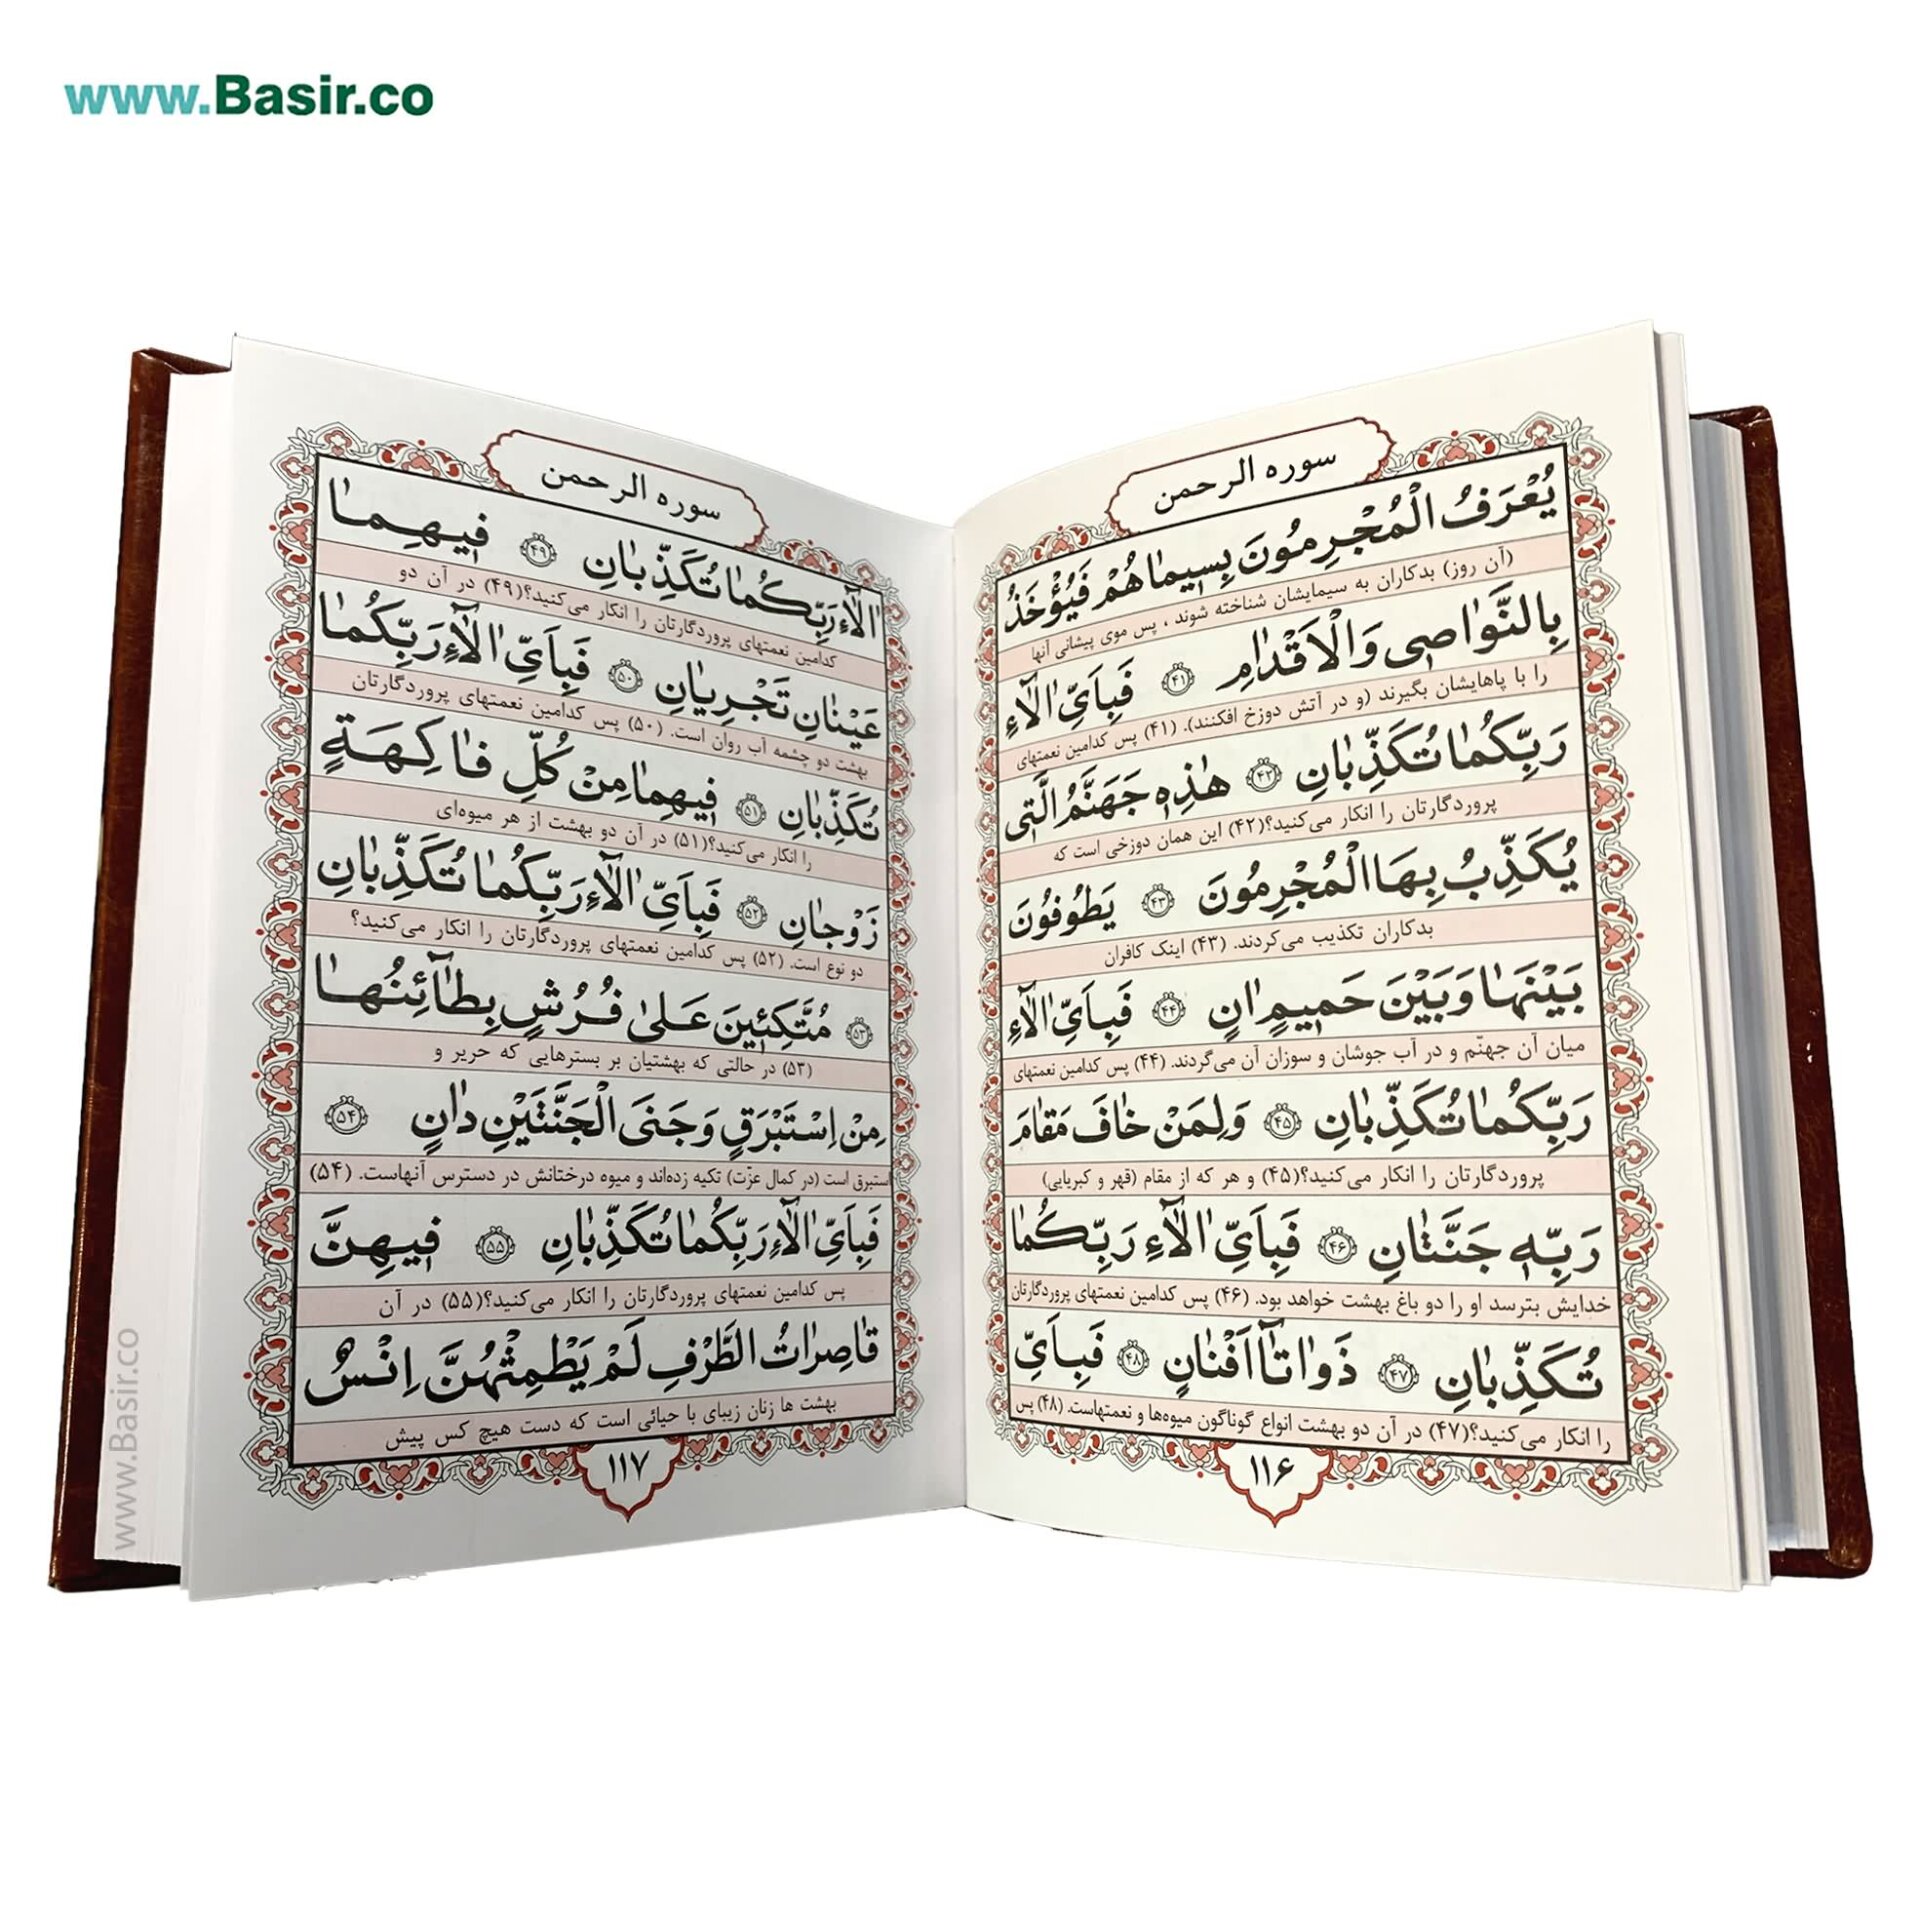 www.Basir.co
سوره الرحمن
يُعْرَفُ الْمُجْرِمُونَ بِسيمٰا هُمْ فَيُؤْخَذُ
(آن روز) بدکاران به سیمایشان شناخته شوند ، پس موی پیشانی آنها
بِالنَّوٰاصي وَالْاَقْدٰامِ ﴿۴۱﴾ فَبِاَيِّ اٰلٰٓاءِ
را با پاهایشان بگیرند (و در آتش دوزخ افکنند). (۴۱) پس کدامین نعمتهای
رَبِّكُمٰا تُكَذِّبٰانِ ﴿۴۲﴾ هٰذِهٖ جَهَنَّمُ الَّتي
پروردگارتان را انکار می‌کنید؟(۴۲) این همان دوزخی است که
يُكَذِّبُ بِهَا الْمُجْرِمُونَ ﴿۴۳﴾ يَطُوفُونَ
بدکاران تکذیب می‌کردند. (۴۳) اینک کافران
بَيْنَهٰا وَ بَيْنَ حَميمٍ اٰنٍ ﴿۴۴﴾ فَبِاَيِّ اٰلٰٓاءِ
میان آن جهنّم و در آب جوشان و سوزان آن می‌گردند. (۴۴) پس کدامین نعمتهای
رَبِّكُمٰا تُكَذِّبٰانِ ﴿۴۵﴾ وَ لِمَنْ خٰافَ مَقٰامَ
پروردگارتان را انکار می‌کنید؟(۴۵) و هر که از مقام (قهر و کبریایی)
رَبِّهٖ جَنَّتٰانِ ﴿۴۶﴾ فَبِاَيِّ اٰلٰٓاءِ رَبِّكُمٰا
خدایش بترسد او را دو باغ بهشت خواهد بود. (۴۶) پس کدامین نعمتهای پروردگارتان
تُكَذِّبٰانِ ﴿۴۷﴾ ذَوٰاتٰٓا اَفْنٰانٍ ﴿۴۸﴾ فَبِاَيِّ
را انکار می‌کنید؟(۴۷) در آن دو بهشت انواع گوناگون میوه‌ها و نعمتهاست. (۴۸) پس
۱۱۶
سوره الرحمن
اٰلٰٓاءِ رَبِّكُمٰا تُكَذِّبٰانِ ﴿۴۹﴾ فيهِمٰا
کدامین نعمتهای پروردگارتان را انکار می‌کنید؟(۴۹) در آن دو
عَيْنٰانِ تَجْرِيٰانِ ﴿۵۰﴾ فَبِاَيِّ اٰلٰٓاءِ رَبِّكُمٰا
بهشت دو چشمه آب روان است. (۵۰) پس کدامین نعمتهای پروردگارتان
تُكَذِّبٰانِ ﴿۵۱﴾ فيهِمٰا مِنْ كُلِّ فٰا كِهَةٍ
را انکار می‌کنید؟(۵۱) در آن دو بهشت از هر میوه‌ای
زَوْجٰانِ ﴿۵۲﴾ فَبِاَيِّ اٰلٰٓاءِ رَبِّكُمٰا تُكَذِّبٰانِ
دو نوع است. (۵۲) پس کدامین نعمتهای پروردگارتان را انکار می‌کنید؟
﴿۵۳﴾ مُتَّكِئينَ عَلىٰ فُرُشٍ بَطٰٓائِنُهٰا
(۵۳) در حالتی که بهشتیان بر بسترهایی که حریر و
مِنْ اِسْتَبْرَقٍ وَ جَنَى الْجَنَّتَيْنِ دٰانٍ ﴿۵۴﴾
استبرق است (در کمال عزّت) تکیه زده‌اند و میوه درختانش در دسترس آنهاست. (۵۴)
فَبِاَيِّ اٰلٰٓاءِ رَبِّكُمٰا تُكَذِّبٰانِ ﴿۵۵﴾ فيهِنَّ
پس کدامین نعمتهای پروردگارتان را انکار می‌کنید؟(۵۵) در آن
قٰاصِرٰاتُ الطَّرْفِ لَمْ يَطْمِثْهُنَّ اِنْسٌ
بهشت ها زنان زیبای با حیائی است که دست هیچ کس پیش
۱۱۷
www.Basir.co